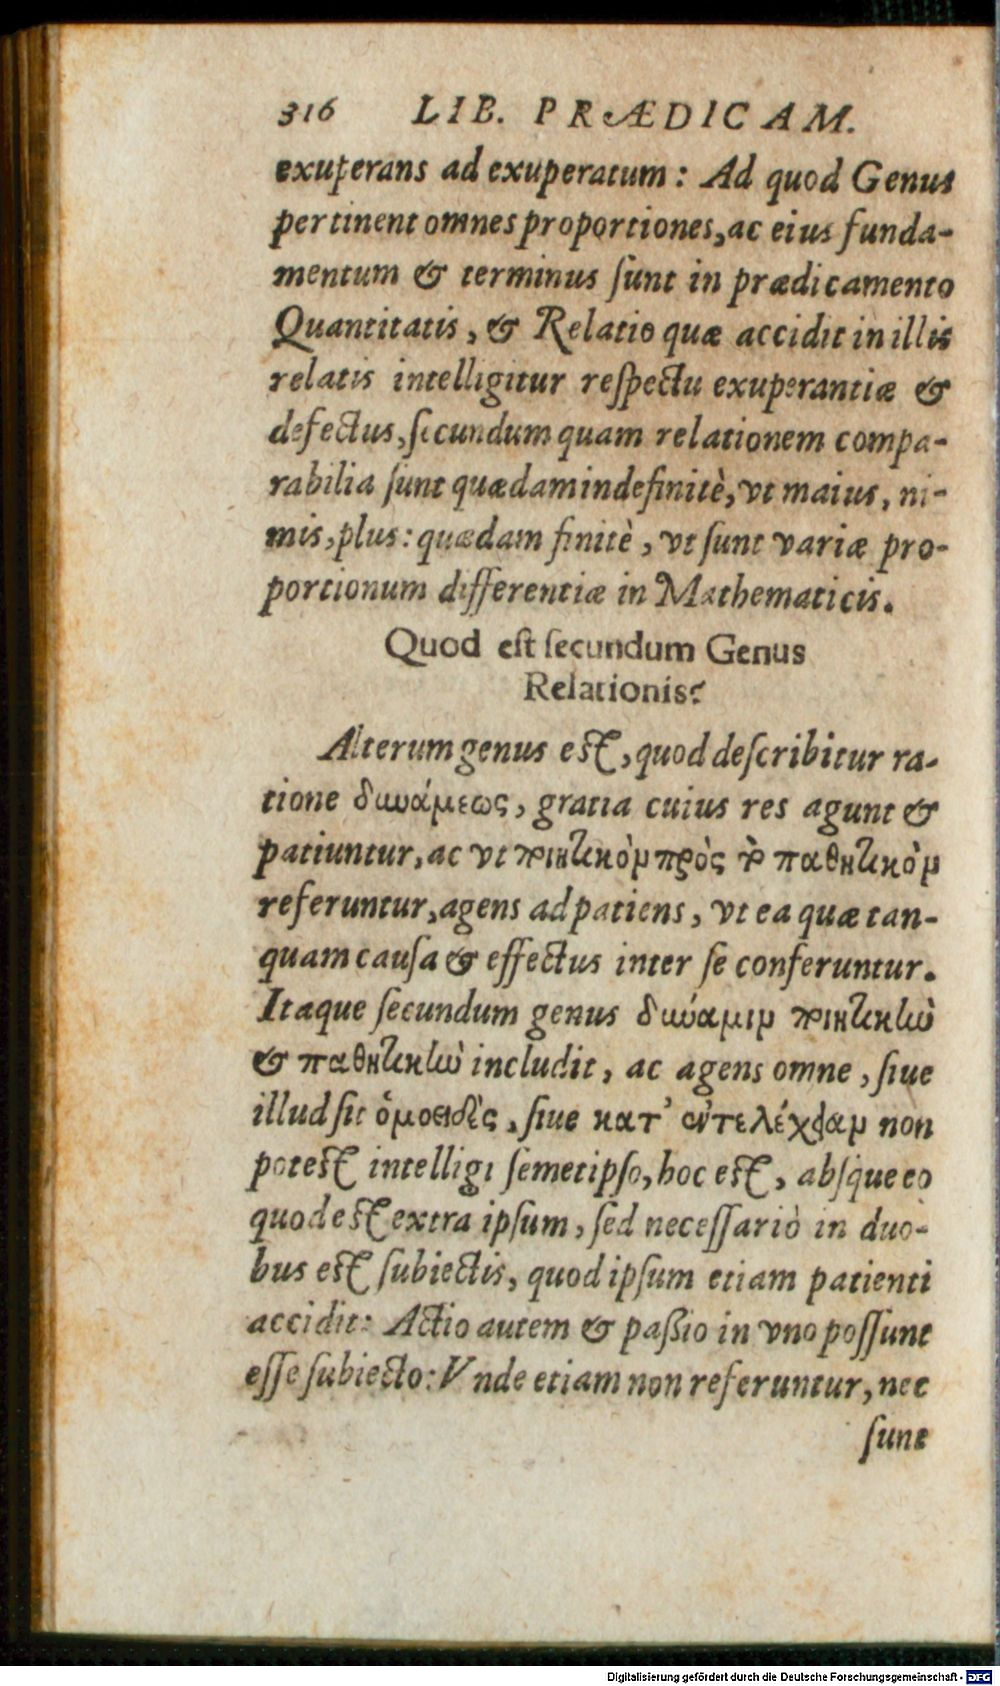 316 LIB. PRÆDICAM.
exuperans ad exuperatum: Ad quod Genus
pertinent omnes proportiones, ac eius funda-
mentum & terminus ſunt in prædicamento
Quantitatis, & Relatio quæ accidit in illis
relatis intelligitur reſpectu exuperantiæ &
defectus, ſecundum quam relationem compa-
rabilia ſunt quædam indefinitè, vt maius, ni-
mis, plus: quædam finitè, vt ſunt variæ pro-
portionum differentiæ in Mathematicis.
Quod eſt ſecundum Genus
Relationis?
Alterum genus eſt, quod deſcribitur ra-
tione δυνάμεως, gratia cuius res agunt &
patiuntur, ac vt ποιητικὸν πρὸς τὸ παθητικὸν
referuntur, agens ad patiens, vt ea quæ tan-
quam cauſa & effectus inter ſe conferuntur.
Itaque ſecundum genus δύναμιν ποιητικὴν
& παθητικὴν includit, ac agens omne, ſiue
illud ſit ὁμοειδὲς, ſiue κατ' ἐντελέχειαν non
poteſt intelligi ſemetipſo, hoc eſt, abſque eo
quod eſt extra ipſum, ſed neceſſariò in duo-
bus eſt ſubiectis, quod ipſum etiam patienti
accidit: Actio autem & paßio in vno poſſunt
eſſe ſubiecto: Vnde etiam non referuntur, nec
ſunt
Digitalisierung gefördert durch die Deutsche Forschungsgemeinschaft - DFG